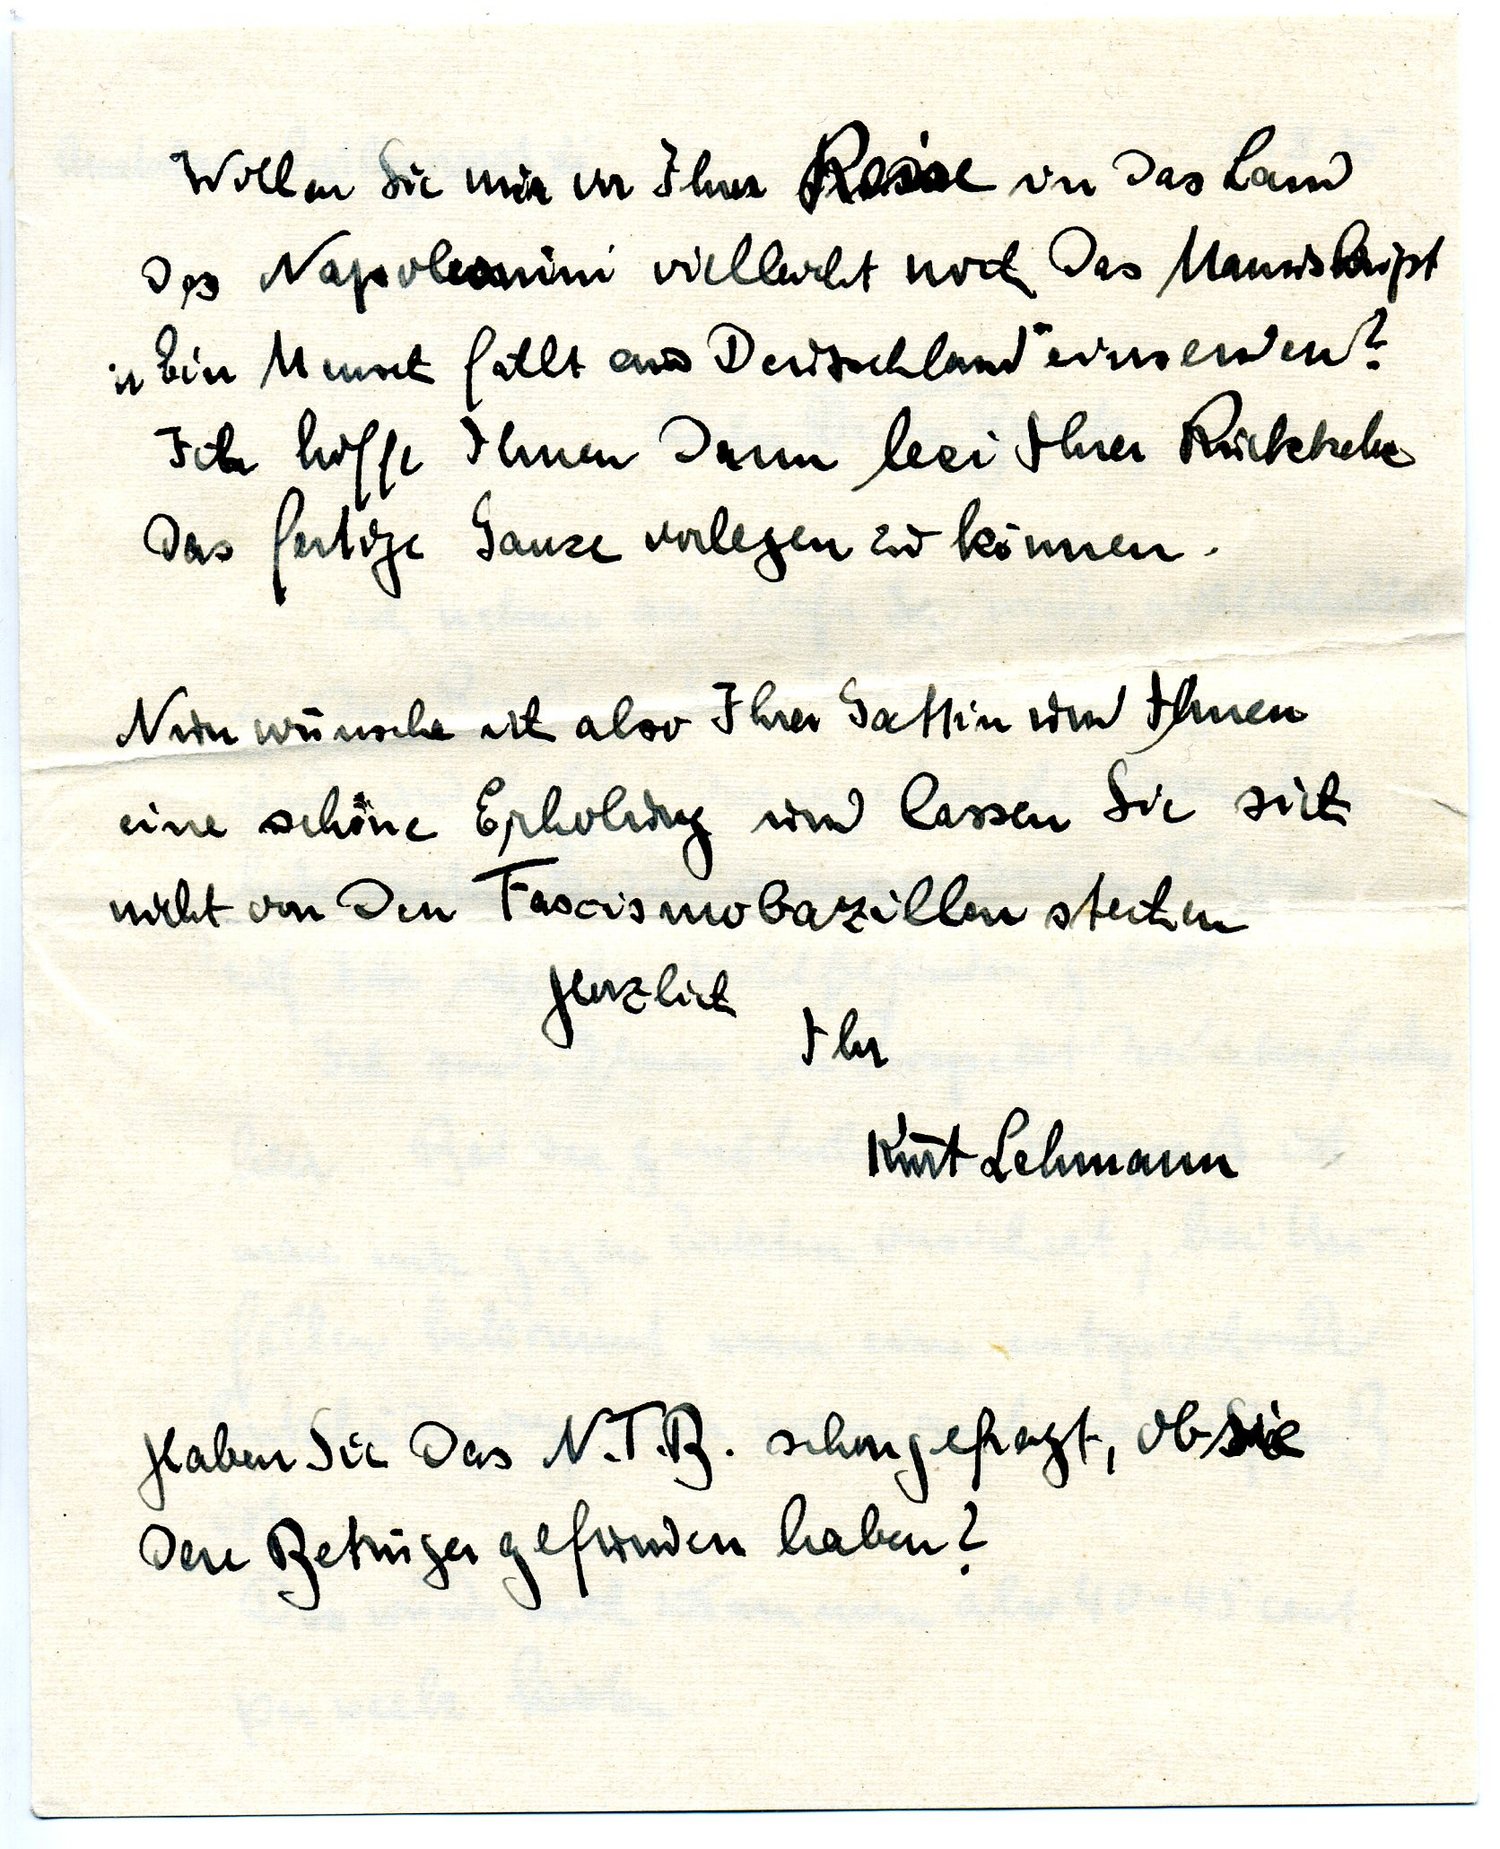 Wollen Sie mir vor Ihrer Reise in das Land
des Napoleonini vielleicht noch das Manuskript
„Ein Mensch fällt aus Deutschland" einsenden?
Ich hoffe Ihnen dann bei Ihrer Rückkehr
das fertige Ganze vorlegen zu können.
Nun wünsche ich also Ihrer Gattin und Ihnen
eine schöne Erholung und lassen Sie sich
nicht von den Fascismobazillen stechen
Herzlich
Ihr
Kurt Lehmann
Haben Sie das N.T.B. schon gefragt, ob sie
den Betrüger gefunden haben?